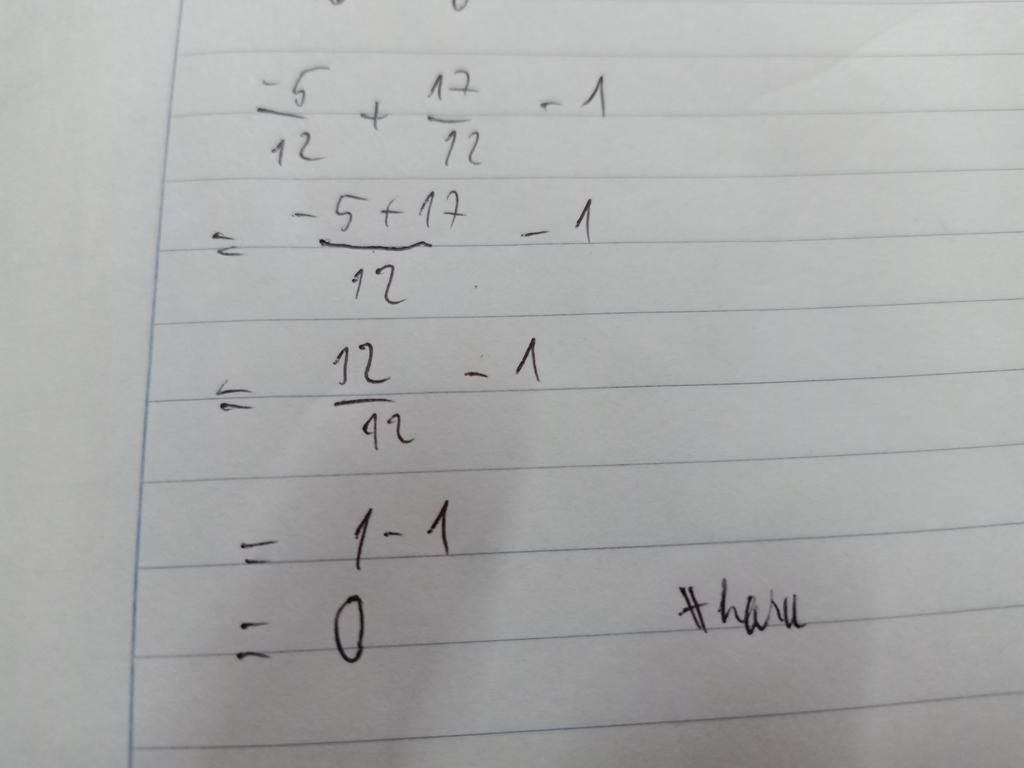 -5/12 + 17/12 - 1
= -5+17/12 - 1
= 12/12 - 1
= 1-1
= 0 #haru